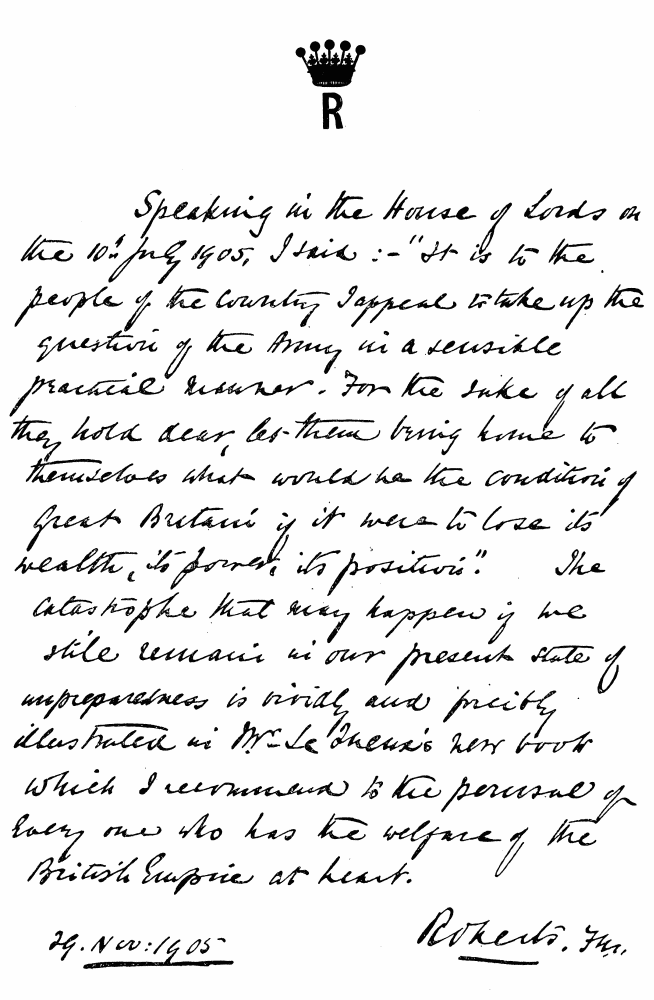 R
Speaking in the House of Lords on
the 10th July 1905, I said :- "It is to the
people of the Country I appeal to take up the
question of the Army in a sensible
practical manner. For the sake of all
they hold dear, let them bring home to
themselves what would be the condition of
Great Britain if it were to lose its
wealth, its power, its position". The
catastrophe that may happen if we
still remain in our present state of
unpreparedness is vividly and forcibly
illustrated in Mr. Le Queux's new book
which I recommend to the perusal of
every one who has the welfare of the
British Empire at heart.
Roberts. F.M.
29. Nov: 1905